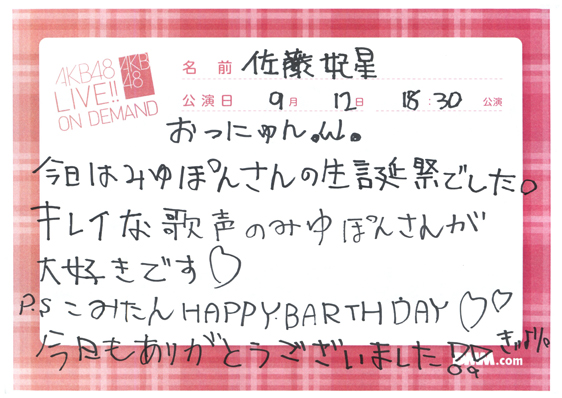 AKB48
LIVE!!
ON DEMAND
AKB
48
名 前 佐藤妃星
公演日 9月 12日 18:30 公演
おっにゅん.ω.
今日はみゆぽんさんの生誕祭でした。
キレイな歌声のみゆぽんさんが
大好きです♡
P.S こみたん HAPPY.BARTH DAY ♡♡
今日もありがとうございました
.com